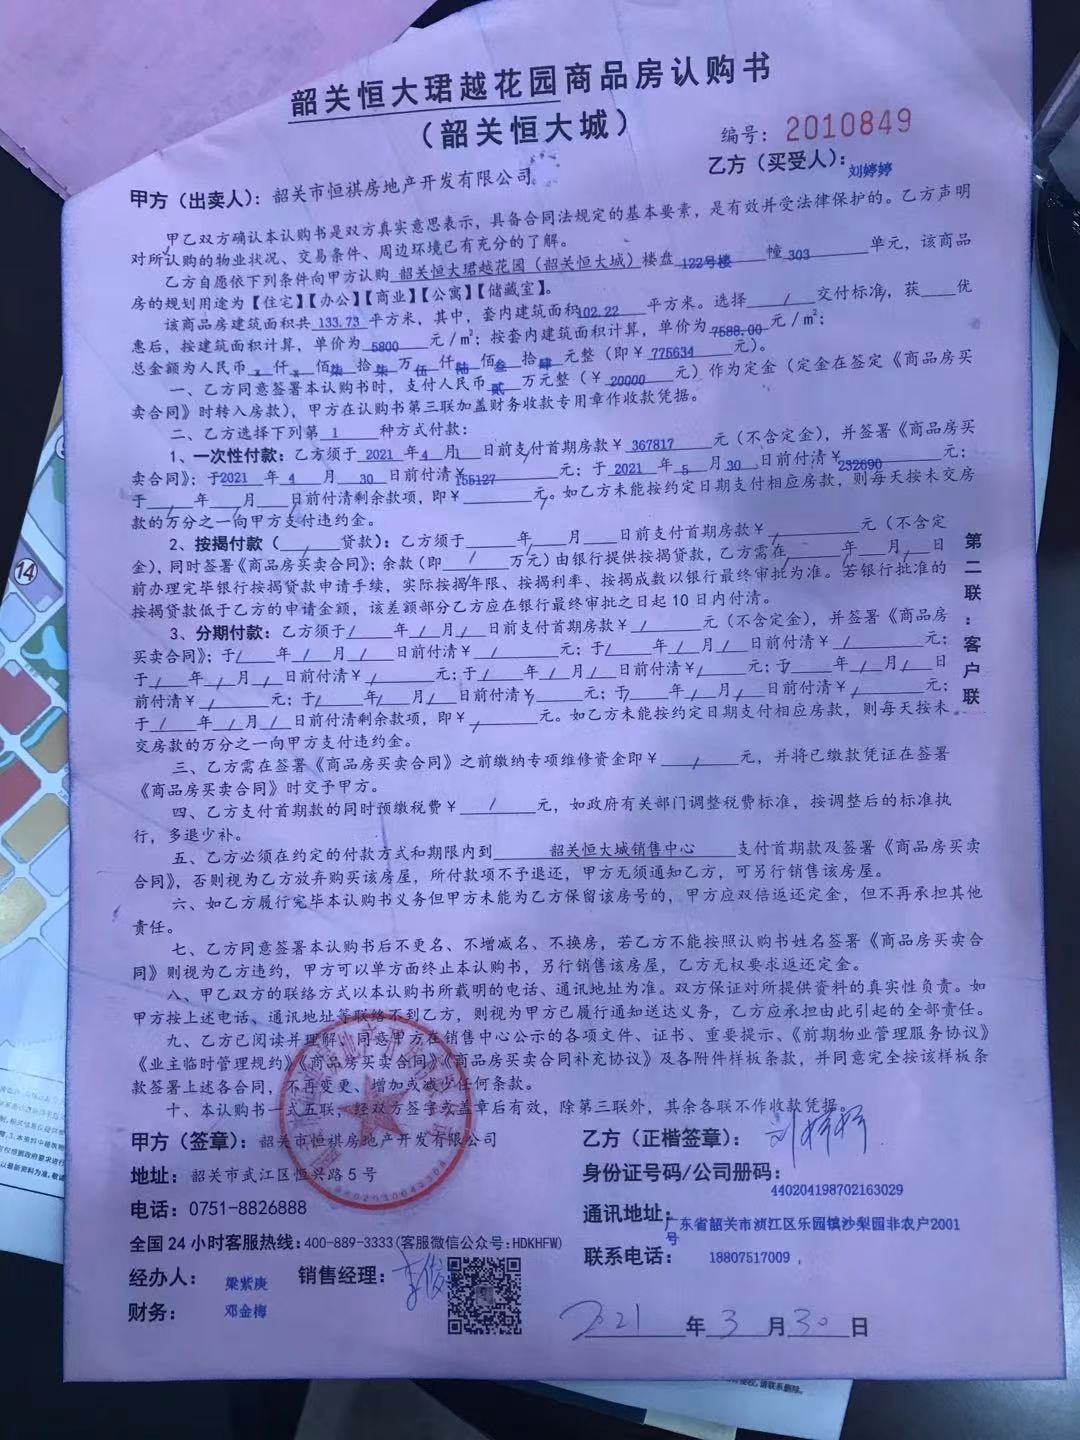 韶关恒大珺越花园商品房认购书
（韶关恒大城）
编号：2010849
甲方（出卖人）：韶关市恒祺房地产开发有限公司
乙方（买受人）：刘婷婷
甲乙双方确认本认购书是双方真实意思表示，具备合同法规定的基本要素，是有效并受法律保护的。乙方声明
对所认购的物业状况、交易条件、周边环境已有充分的了解。
乙方自愿依下列条件向甲方认购 韶关恒大珺越花园（韶关恒大城）楼盘 122号楼 幢 303 单元，该商品
房的规划用途为【住宅】【办公】【商业】【公寓】【储藏室】。
该商品房建筑面积共 133.73 平方米，其中，套内建筑面积102.22 平方米。选择 / 交付标准，获 优
惠后，按建筑面积计算，单价为 5800 元/㎡；按套内建筑面积计算，单价为 7588.00 元/㎡；
总金额为人民币 x 仟 x 佰 柒 拾 柒 万 伍 仟 陆 佰 叁 拾 肆 元整（即￥ 775634 元）。
一、乙方同意签署本认购书时，支付人民币 贰 万元整（￥ 20000 元）作为定金（定金在签定《商品房买
卖合同》时转入房款），甲方在认购书第三联加盖财务收款专用章作收款凭据。
二、乙方选择下列第 1 种方式付款：
1、一次性付款：乙方须于 2021 年 4 月 1 日前支付首期房款￥ 367817 元（不含定金），并签署《商品房买
卖合同》；于2021 年 4 月 30 日前付清￥155127 元；于 2021 年 5 月 30 日前付清￥232690 元；
于 / 年 / 月 / 日前付清剩余款项，即￥ 元。如乙方未能按约定日期支付相应房款，则每天按未交房
款的万分之一向甲方支付违约金。
2、按揭付款（ / 贷款）：乙方须于 年 / 月 日前支付首期房款￥ 元（不含定
金），同时签署《商品房买卖合同》；余款（即 / 万元）由银行提供按揭贷款，乙方需在 年 / 月 / 日
前办理完毕银行按揭贷款申请手续，实际按揭年限、按揭利率、按揭成数以银行最终审批为准。若银行批准的
按揭贷款低于乙方的申请金额，该差额部分乙方应在银行最终审批之日起 10 日内付清。
3、分期付款：乙方须于 / 年 / 月 / 日前支付首期房款￥ / 元（不含定金），并签署《商品房
买卖合同》；于 / 年 / 月 / 日前付清￥ / 元；于 / 年 / 月 / 日前付清￥ / 元；
于 / 年 / 月 / 日前付清￥ / 元；于 / 年 / 月 / 日前付清￥ / 元；于 / 年 / 月 / 日
前付清￥ / 元；于 / 年 / 月 / 日前付清￥ / 元；于 / 年 / 月 / 日前付清￥ / 元；
于 / 年 / 月 / 日前付清剩余款项，即￥ / 元。如乙方未能按约定日期支付相应房款，则每天按未
交房款的万分之一向甲方支付违约金。
三、乙方需在签署《商品房买卖合同》之前缴纳专项维修资金即￥ / 元，并将已缴款凭证在签署
《商品房买卖合同》时交予甲方。
四、乙方支付首期款的同时预缴税费￥ / 元，如政府有关部门调整税费标准，按调整后的标准执
行，多退少补。
五、乙方必须在约定的付款方式和期限内到 韶关恒大城销售中心 支付首期款及签署《商品房买卖
合同》，否则视为乙方放弃购买该房屋，所付款项不予退还，甲方无须通知乙方，可另行销售该房屋。
六、如乙方履行完毕本认购书义务但甲方未能为乙方保留该房号的，甲方应双倍返还定金，但不再承担其他
责任。
七、乙方同意签署本认购书后不更名、不增减名、不换房，若乙方不能按照认购书姓名签署《商品房买卖合
同》则视为乙方违约，甲方可以单方面终止本认购书，另行销售该房屋，乙方无权要求返还定金。
八、甲乙双方的联络方式以本认购书所载明的电话、通讯地址为准。双方保证对所提供资料的真实性负责。如
甲方按上述电话、通讯地址等联络不到乙方，则视为甲方已履行通知送达义务，乙方应承担由此引起的全部责任。
九、乙方已阅读并理解，同意甲方在销售中心公示的各项文件、证书、重要提示、《前期物业管理服务协议》
《业主临时管理规约》《商品房买卖合同》《商品房买卖合同补充协议》及各附件样板条款，并同意完全按该样板条
款签署上述各合同，不再变更、增加或减少任何条款。
十、本认购书一式五联，经双方签字或盖章后有效，除第三联外，其余各联不作收款凭据。
第二联：客户联
甲方（签章）：韶关市恒祺房地产开发有限公司
地址：韶关市武江区恒兴路5号
电话：0751-8826888
全国24小时客服热线：400-889-3333(客服微信公众号：HDKHFW)
经办人： 梁紫庚 销售经理：李俊
财务： 邓金梅
乙方（正楷签章）：刘婷婷
身份证号码/公司册码：440204198702163029
通讯地址：广东省韶关市浈江区乐园镇沙梨园非农户2001
号
联系电话： 18807517009
2021 年 3 月 30 日
14